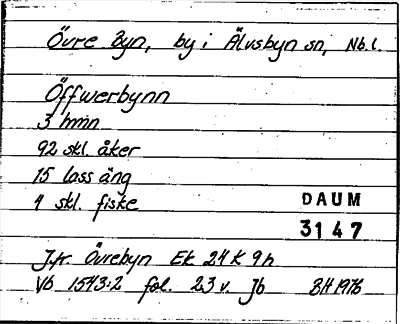 Övre Byn, by i Älvsbyn sn, Nb. l.
Öffwerbynn
3 hmn
92 skl. åker
15 lass äng
1 skl. fiske
DAUM
3147
Jfr Övrebyn Ek 24 K 9h
Vb 1543:2 fol. 23 v. Jb BH 1976